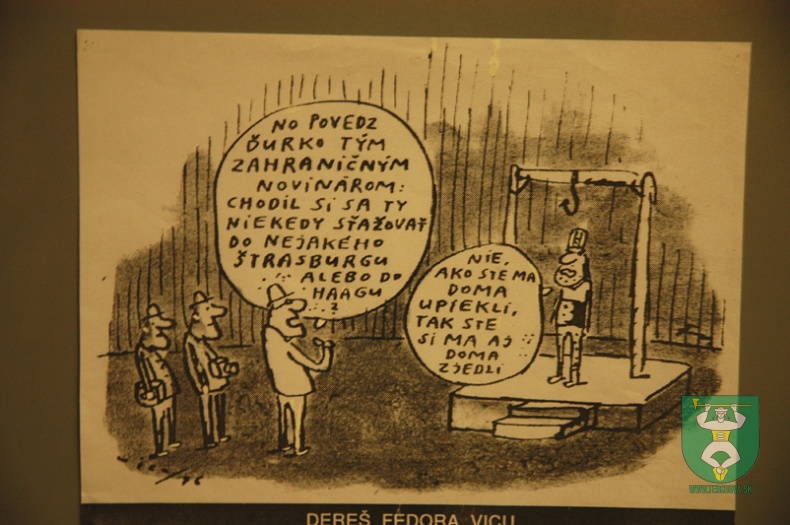 NO POVEDZ
ĎURKO TÝM
ZAHRANIČNÝM
NOVINÁROM:
CHODIL SI SA TY
NIEKEDY SŤAŽOVAŤ
DO NEJAKÉHO
ŠTRASBURGU
ALEBO DO
HAAGU
?
NIE,
AKO STE MA
DOMA
UPIEKLI,
TAK STE
SI MA AJ
DOMA
ZJEDLI
DEREŠ FEDORA VICU